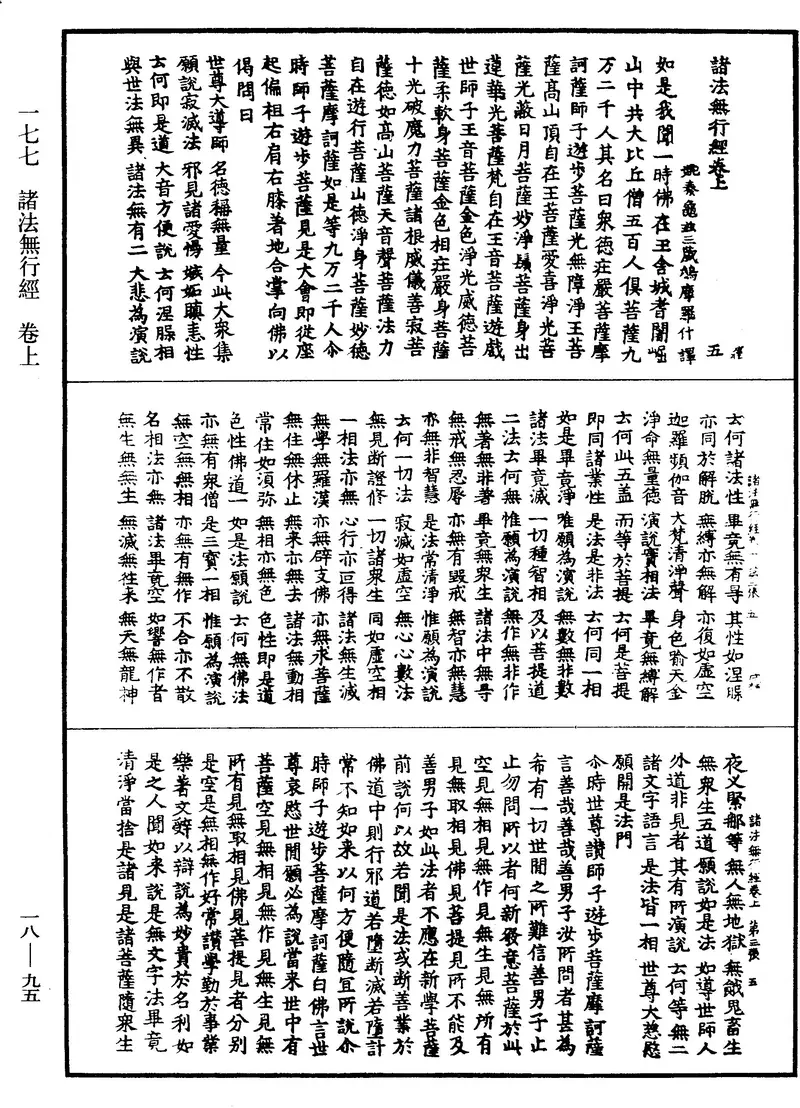 一七七　諸法無行經　卷上
一八—九五
諸法無行經卷上
五
姚秦龜茲三藏鳩摩羅什譯
如是我聞一時佛在王舍城耆闍崛
山中共大比丘僧五百人俱菩薩九
万二千人其名曰眾德莊嚴菩薩摩
訶薩師子遊步菩薩光無障淨王菩
薩高山頂自在王菩薩愛喜淨光菩
薩光蔽日月菩薩妙淨鬚菩薩身出
蓮華光菩薩梵自在王音菩薩遊戲
世師子王音菩薩金色淨光威德菩
薩柔軟身菩薩金色相莊嚴身菩薩
十光破魔力菩薩諸根威儀善寂菩
薩德如高山菩薩天音聲菩薩法力
自在遊行菩薩山德淨身菩薩妙德
菩薩摩訶薩如是等九万二千人尒
時師子遊步菩薩見是大會即從座
起偏袒右肩右膝著地合掌向佛以
偈問曰
世尊大導師　名德稱無量　今此大眾集
願說寂滅法　邪見諸愛慢　嫉妬瞋恚性
云何即是道　大音方便說　云何涅槃相
與世法無異　諸法無有二　大悲為演說
云何諸法性　畢竟無有㝵　其性如涅槃
亦同於解脫　無縛亦無解　亦復如虛空
迦羅頻伽音　大梵清淨聲　身色喻天金
淨命無量德　演說實相法　畢竟無縛解
云何此五蓋　而等於菩提　云何是菩提
即同諸業性　是法是非法　云何同一相
如是畢竟淨　唯願為演說　無數無非數
諸法畢竟滅　一切種智相　及以菩提道
二法云何無　惟願為演說　無作無非作
無著無非著　畢竟無眾生　諸法中無㝵
無戒無忍辱　亦無有毀戒　無智亦無慧
亦無非智慧　是法常清淨　惟願為演說
云何一切法　寂滅如虛空　無心心數法
無見斷證修　一切諸眾生　同如虛空相
一相法亦無　心行亦叵得　諸法無生滅
無學無羅漢　亦無辟支佛　亦無求菩薩
無住無休止　無來亦無去　諸法無動相
常住如須弥　無相亦無色　色性即是道
色性佛道一　如是法願說　云何無佛法
亦無有眾僧　是三寶一相　惟願為演說
無空無無相　亦無有無作　不合亦不散
名相法亦無　諸法畢竟空　如響無作者
無生無無生　無滅無往來　無天無龍神
諸法無行經卷上　第三張　五
夜叉緊那等　無人無地獄　無餓鬼畜生
無眾生五道　願說如是法　如導世師人
外道非見者　其有所演說　云何等無二
諸文字語言　是法皆一相　世尊大慈愍
願開是法門
尒時世尊讚師子遊步菩薩摩訶薩
言善哉善哉善男子汝所問者甚為
希有一切世間之所難信善男子止
止勿問所以者何新發意菩薩於此
空見無相見無作見無生見無所有
見無取相見佛見菩提見所不能及
善男子如此法者不應在新學菩薩
前說何以故若聞是法或斷善業於
佛道中則行邪道若墮斷滅若墮計
常不知如來以何方便隨宜所說尒
時師子遊步菩薩摩訶薩白佛言世
尊哀愍世間願必為說當來世中有
菩薩空見無相見無作見無生見無
所有見無取相見佛見菩提見者分別
是空是無相無作好常讚學勤於事業
樂著文辭以辯說為妙貴於名利如
是之人聞如來說是無文字法畢竟
清淨當捨是諸見是諸菩薩隨眾生